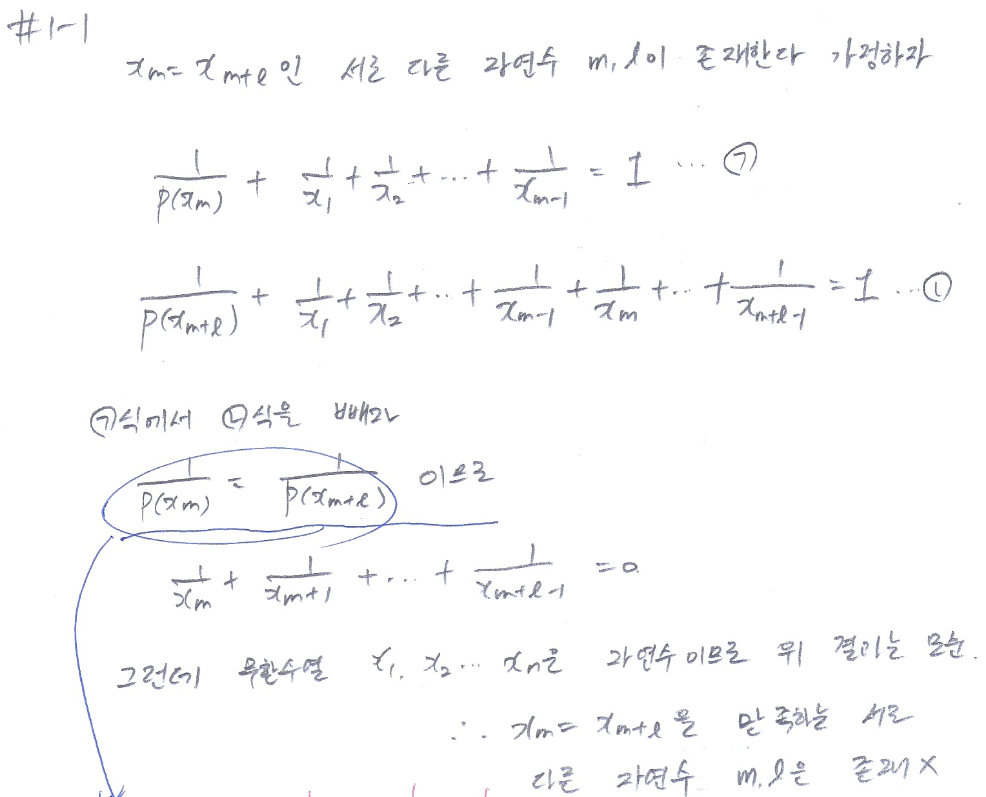 #1-1
x_m = x_{m+l} 인 서로 다른 자연수 m, l이 존재한다 가정하자
1/P(x_m) + 1/x_1 + 1/x_2 + ... + 1/x_{m-1} = 1 ... ㉠
1/P(x_{m+l}) + 1/x_1 + 1/x_2 + ... + 1/x_{m-1} + 1/x_m + ... + 1/x_{m+l-1} = 1 ... ㉡
㉠식에서 ㉡식을 빼자
1/P(x_m) = 1/P(x_{m+l}) 이므로
1/x_m + 1/x_{m+1} + ... + 1/x_{m+l-1} = 0
그런데 무한수열 x_1, x_2 ... x_n은 자연수이므로 위 결과는 모순.
∴ x_m = x_{m+l} 을 만족하는 서로
다른 자연수 m, l은 존재 ×